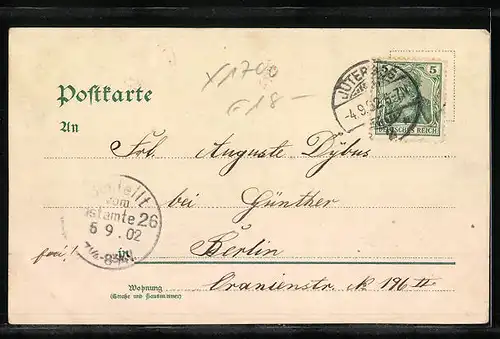 x 1700
18-
JÜTERBOG
-4.9.02.5-7N.
5
DEUTSCHES REICH
Postkarte
An
Frl. Auguste Dybus
bei Günther
in
Berlin
Oranienstr. № 196 II
Bestellt
vom
Postamte 26
5 9.02
frei!
Wohnung
(Straße und Hausnummer)